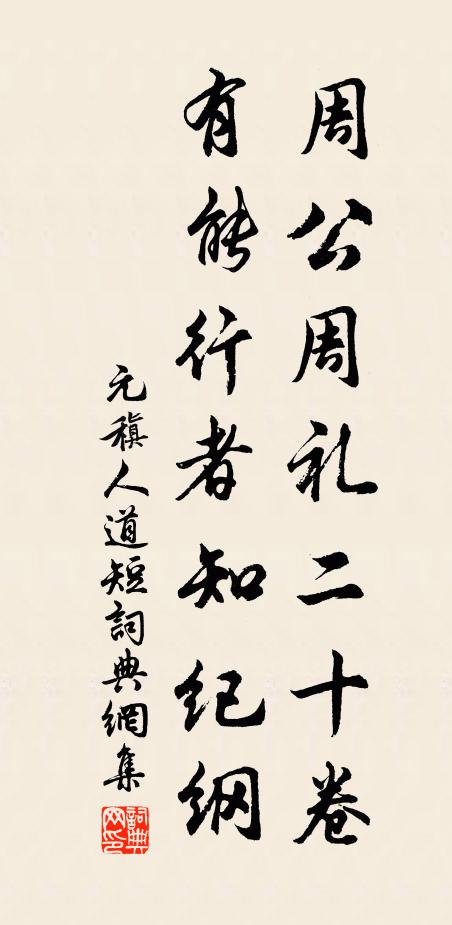 周公周礼二十卷
有能行者知纪纲
元稹人道短詞典網集
詞典網印